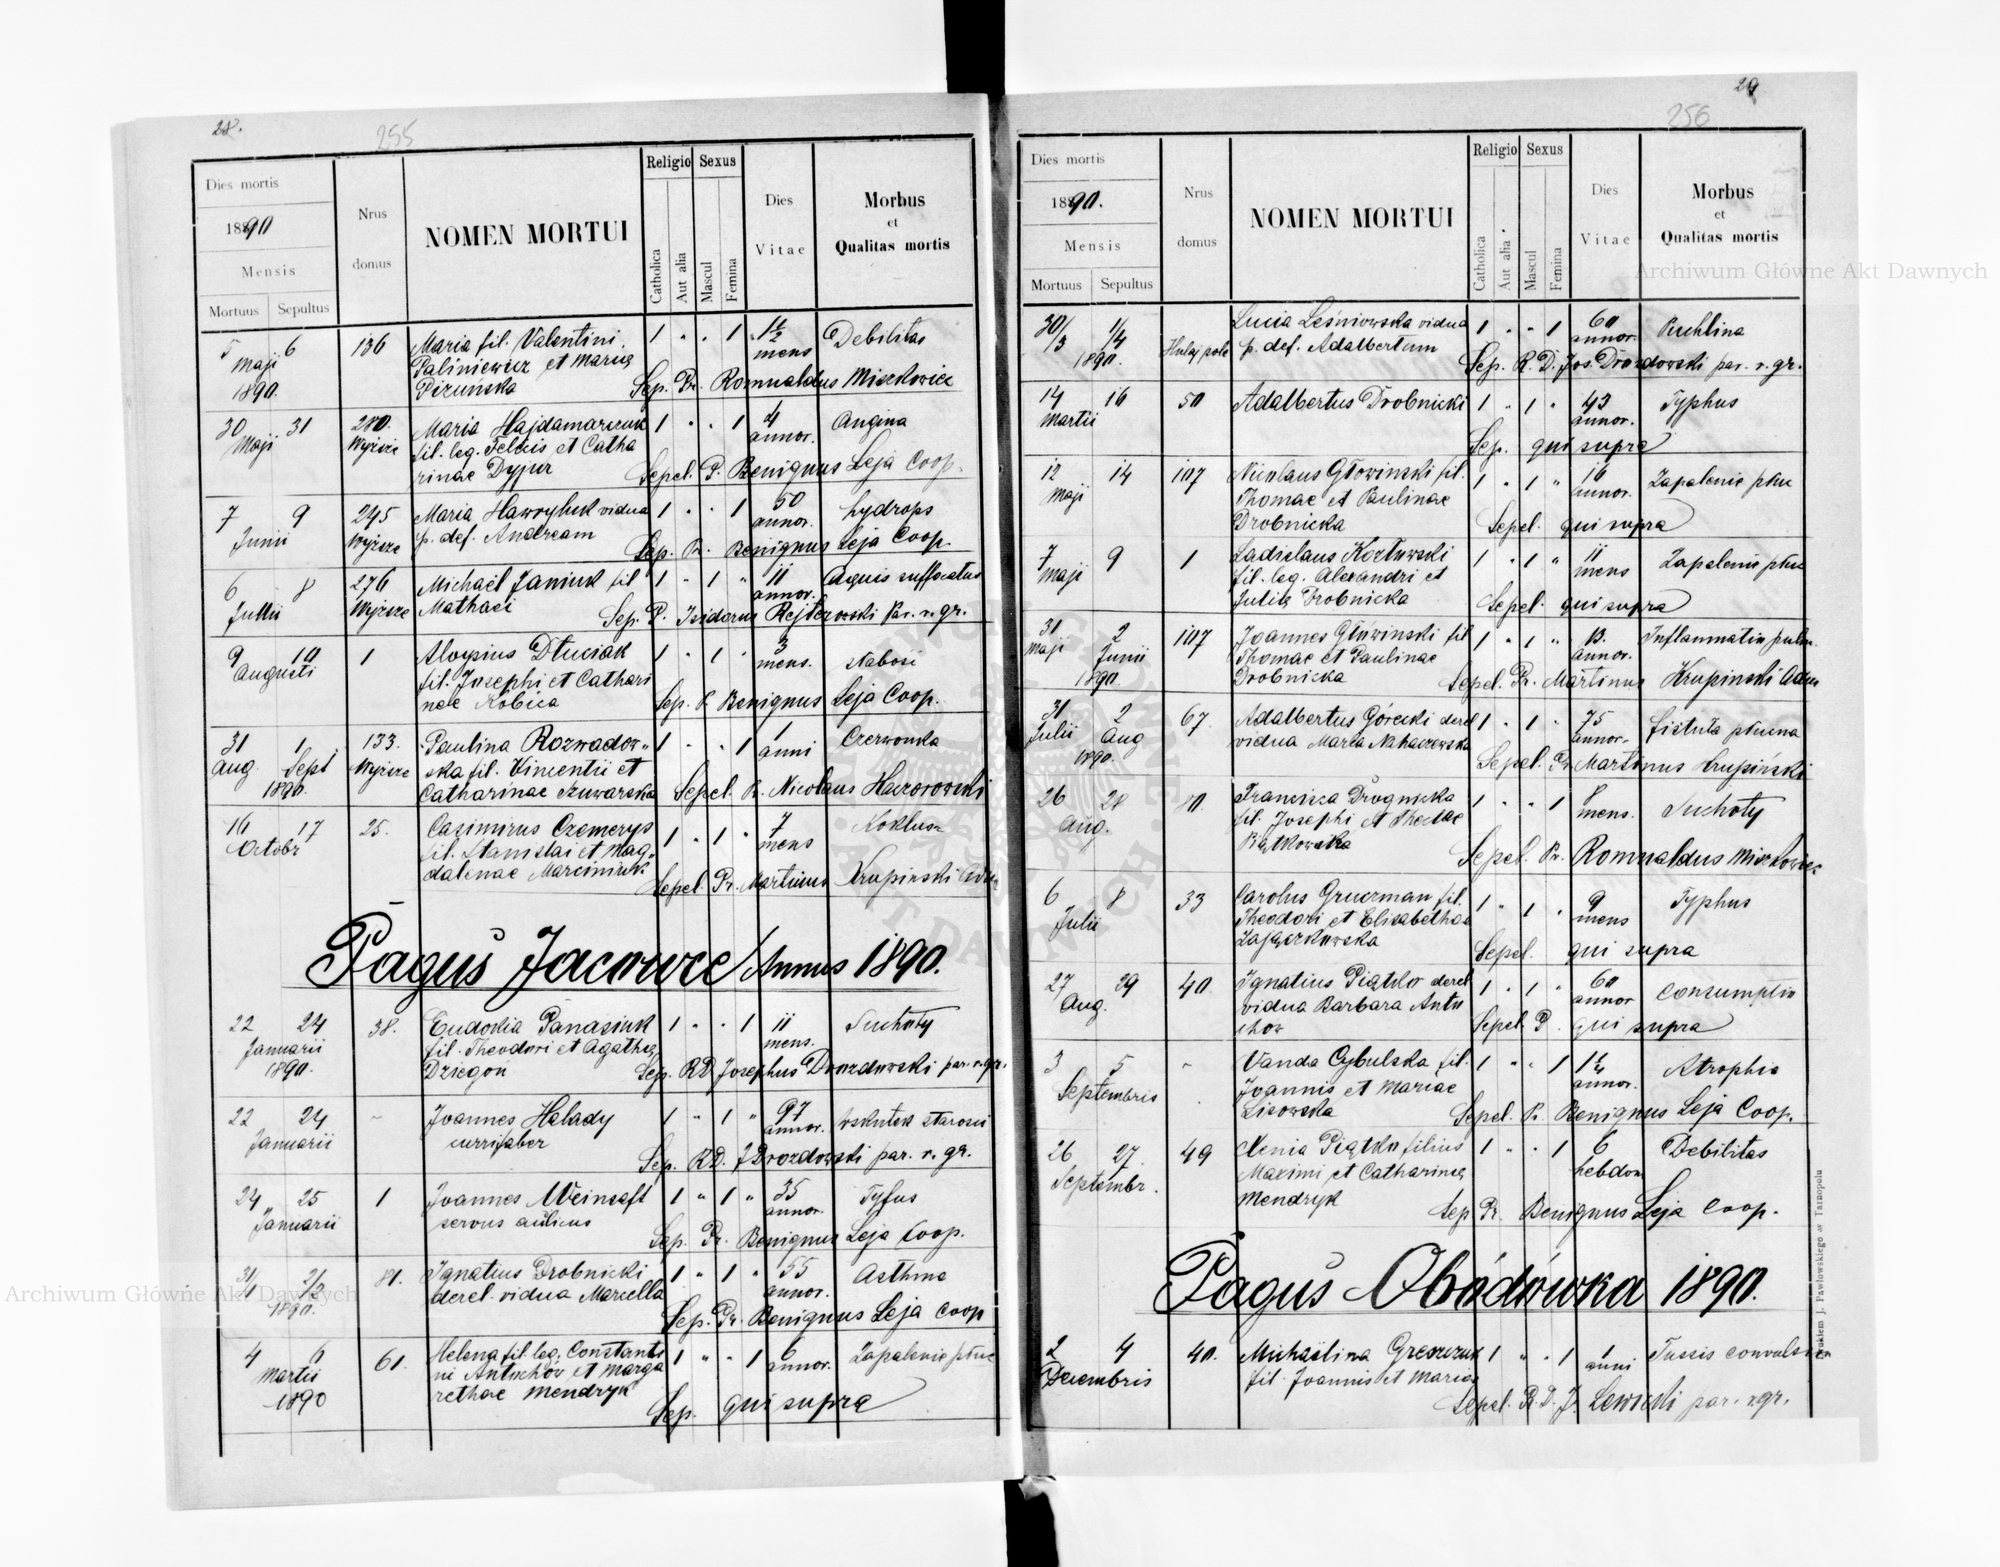 28.
255
Dies mortis
1890
Mensis
Mortuus Sepultus
Nrus domus
NOMEN MORTUI
Religio Sexus
Catholica
Aut alia
Mascul
Femina
Dies Vitae
Morbus
et
Qualitas mortis
5 6 136 Maria fil. Valentini 1 " " 1 1 1/2 Debilitas
Maji Paliniewicz et Mariae mens
1890. Pizuńska Sep. Pr. Romualdus Miszkowicz
30 31 280. Maria Hajdamarczuk 1 " " 1 4 Angina
Maji Wyższe fil. leg. Felicis et Catha annor.
rinae Dyjur Sepel. P. Benignus Leja Coop.
7 9 245 Maria Hawryluk vidua 1 " " 1 50 hydrops
Junii Wyższe p. def. Andream annor.
Sep. Pr. Benignus Leja Coop.
6 8 276 Michaël Janiuk fil 1 " 1 " 11 Aquis suffocatus
Julii Wyższe Mathaei annor.
Sep. P. Isidorus Rejterowski Par. r. gr.
9 10 1 Aloysius Dłuciak 1 " 1 " 3 słabość
Augusti fil. Josephi et Cathari mens.
nae Kobica Sep. P. Benignus Leja Coop.
31 1 133. Paulina Rozwadow- 1 " " 1 1 Czerwonka
Aug. Sept Wyższe ska fil. Vincentii et anni
1890. Catharinae Szuwarska Sepel. Pr. Nicolaus Haczorowski
16 17 25. Casimirus Czemerys 1 " 1 " 7 Koklusz
Octobr fil. Stanislai et Mag- mens
dalenae Marciniuk Sepel Pr. Martinus Krupinski Adm
Pagus Jacowce Annus 1890.
22 24 38. Eudokia Panasiuk 1 " " 1 11 Suchoty
Januarii fil. Theodori et Agatha mens.
1890. Dziegoń Sep. RD Josephus Drozdowski par. r. gr.
22 24 - Joannes Halady 1 " 1 " 97 wskutek starości
Januarii currifaber annor.
Sep. RD. J Drozdowski par. r. gr.
24 25 1 Joannes Weinsaft 1 " 1 " 35 Tyfus
Januarii servus aulicus annor.
Sep. Pr. Benignus Leja Coop.
31/1 2/2 81. Ignatius Drobnicki 1 " 1 " 55 Asthma
1890. derel. vidua Marcella annor.
Sep. Pr. Benignus Leja Coop
4 6 61. Helena fil. leg. Constanti 1 " " 1 6 Zapalenie płuc
Martii ni Antochów et Marga annor.
1890 rethae Mendryk Sep. qui supra
29
256
Dies mortis
1890.
Mensis
Mortuus Sepultus
Nrus domus
NOMEN MORTUI
Religio Sexus
Catholica
Aut alia
Mascul
Femina
Dies Vitae
Morbus
et
Qualitas mortis
30/3 1/4 Hulaj pole Lucia Leśniowska vidua 1 " " 1 60 Puchlina
1890. p. def. Adalbertum annor.
Sep. R. D. Jos. Drozdowski par. r. gr.
14 16 50 Adalbertus Drobnicki 1 " 1 " 43 Typhus
Martii annor.
Sep. qui supra
12 14 107 Nicolaus Głowinski fil. 1 " 1 " 16 Zapalenie płuc
Maji Thomae et Paulinae annor.
Drobnicka Sepel. qui supra
7 9 1 Ladislaus Kozłowski 1 " 1 " 11 Zapalenie płuc
Maji fil. leg. Alexandri et mens
Julia Drobnicka Sepel. qui supra
31 2 107 Joannes Głowinski fil 1 " 1 " 13. Inflammatio pulm.
Maji Junii Thomae et Paulinae annor.
1890. Drobnicka Sepel. Pr. Martinus Krupinski Adm
31 2 67. Adalbertus Górecki derel 1 " 1 " 75 fistuła płucna
Julii Aug vidua Maria Nahaczewska annor.
1890. Sepel. Pr Martinus Krupiński
26 28 80 Francisca Drognicka 1 " " 1 8 Suchoty
Aug. fil. Josephi et Theclae mens.
Bątkowska Sepel. Pr. Romualdus Miszkowicz
6 8 33 Carolus Gruczman fil. 1 " 1 " 9 Typhus
Julii Theodori et Elisabethae mens
Zajączkowska Sepel. qui supra
27 29 40. Ignatius Piątko derel 1 " 1 " 60 Consumptio
Aug. vidua Barbara Anto annor
chow Sepel. P. qui supra
3 5 - Vanda Cybulska fil. 1 " " 1 1 1/4 Atrophia
Septembris Joannis et Mariae annor.
Lisowska Sepel. Pr. Benignus Leja Coop.
26 27 49 Xenia Piątko filius 1 " " 1 6 Debilitas
Septembr. Maximi et Catharina hebdom
Mendryk Sep Pr. Benignus Leja Coop.
Pagus Obodówka 1890.
2 4 40. Michaëlina Greszczuk 1 " " 1 1 Tussis convulsiva
Decembris fil. Joannis et Mariae anni
Sepel. R. D. J. Lewicki par. r. gr.
Drukiem J. Pawłowskiego w Tarnopolu
Archiwum Główne Akt Dawnych
Archiwum Główne Akt Dawnych